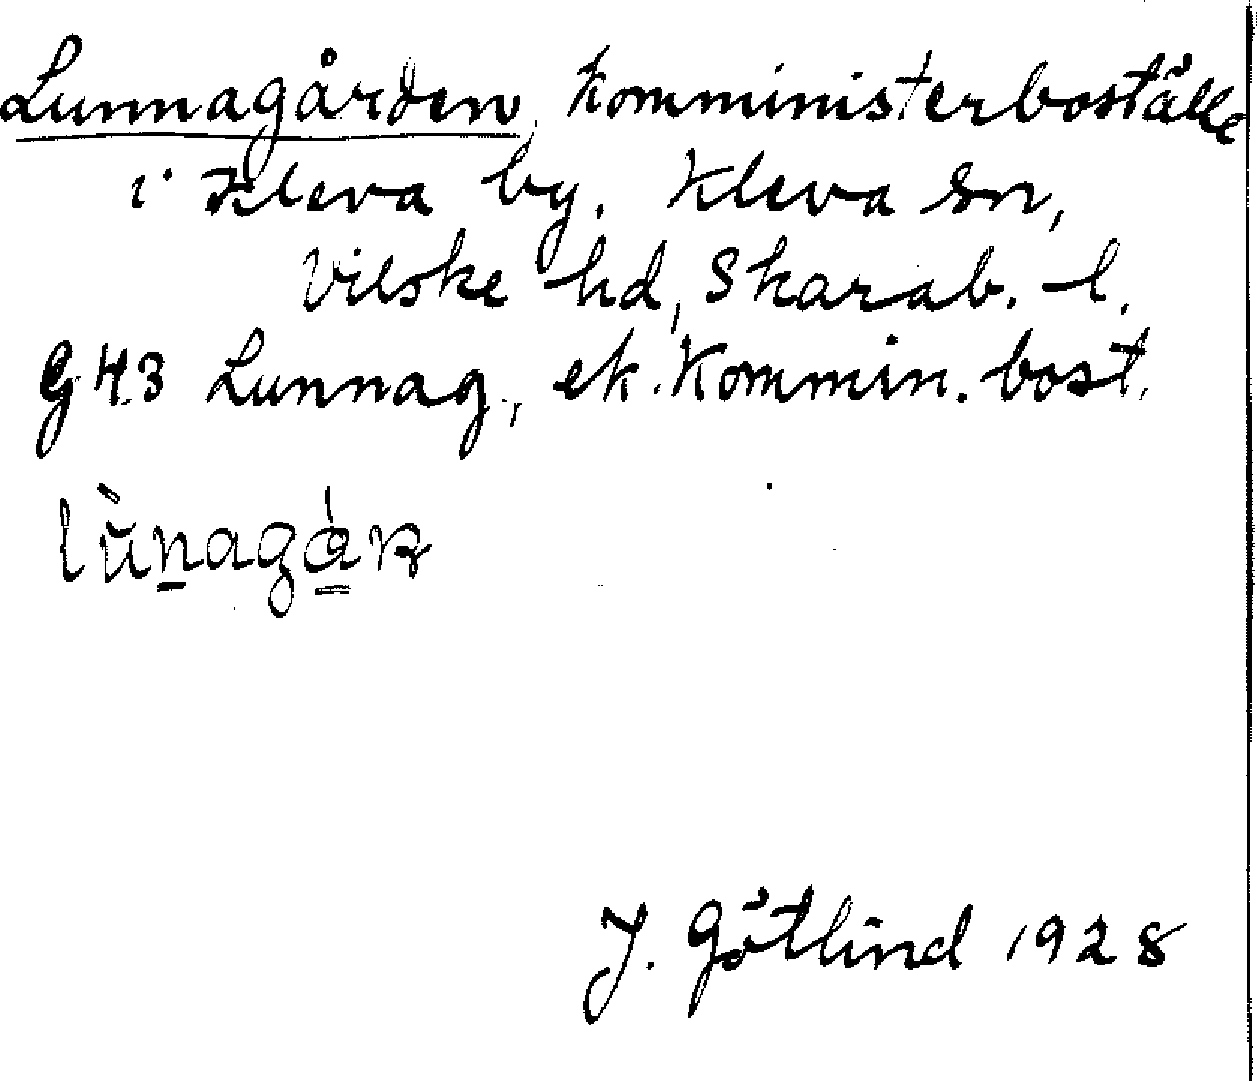 Lunnagården, komministerboställe
i Kleva by. Kleva sn,
Vilske hd, Skarab. l.
G 43 Lunnag., ek. Kommin. bost.
J. Götlind 1928